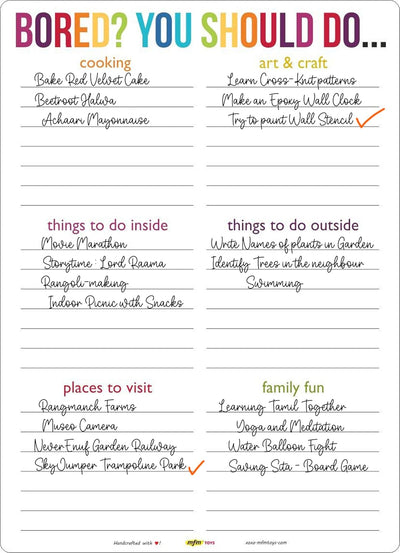 BORED? YOU SHOULD DO...
cooking
Bake Red Velvet Cake
Beetroot Halwa
Achaari Mayonnaise
art & craft
Learn Cross-Knit patterns
Make an Epoxy Wall Clock
Try to paint Wall Stencil
things to do inside
Movie Marathon
Storytime : Lord Raama
Rangoli-making
Indoor Picnic with Snacks
things to do outside
Write Names of plants in Garden
Identify Trees in the neighbour
Swimming
places to visit
Rangmanch Farms
Museo Camera
NeverEnuf Garden Railway
SkyJumper Trampoline Park
family fun
Learning Tamil Together
Yoga and Meditation
Water Balloon Fight
Saving Sita - Board Game
Handcrafted with ♥!
mfm TOYS